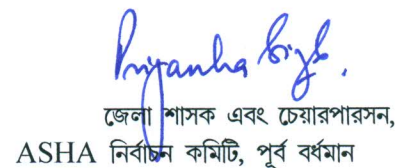 Priyanka Singla.
জেলা শাসক এবং চেয়ারপারসন,
ASHA নির্বাচন কমিটি, পূর্ব বর্ধমান